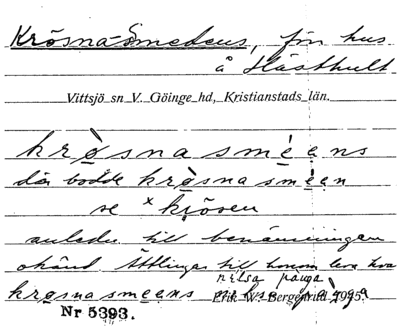 Krösna-Smedens, förr hus
å Hästhult
Vittsjö sn V. Göinge hd, Kristianstads län.
krøsnasmèens
där bodde krøsnasmèen
se × krösen
anledn. till benämningen
okänd Ättlingar till honom leva kva
nilsa pånga
krøsnasmeens
Frih. W. Bergenträd 1925.
Nr 5393.